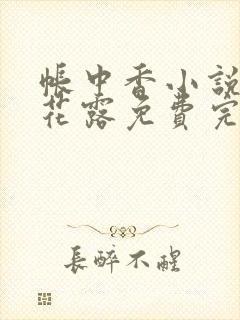 帳中香小說
花露免費完
長醉不醒